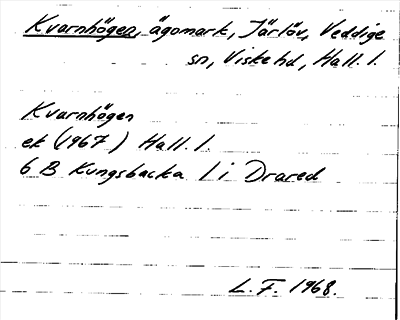 Kvarnhögen, ägomark, Järlöv, Veddige
sn, Viske hd, Hall. l.
Kvarnhögen
ek (1967) Hall. l.
6 B Kungsbacka l i Drared
L. F. 1968.